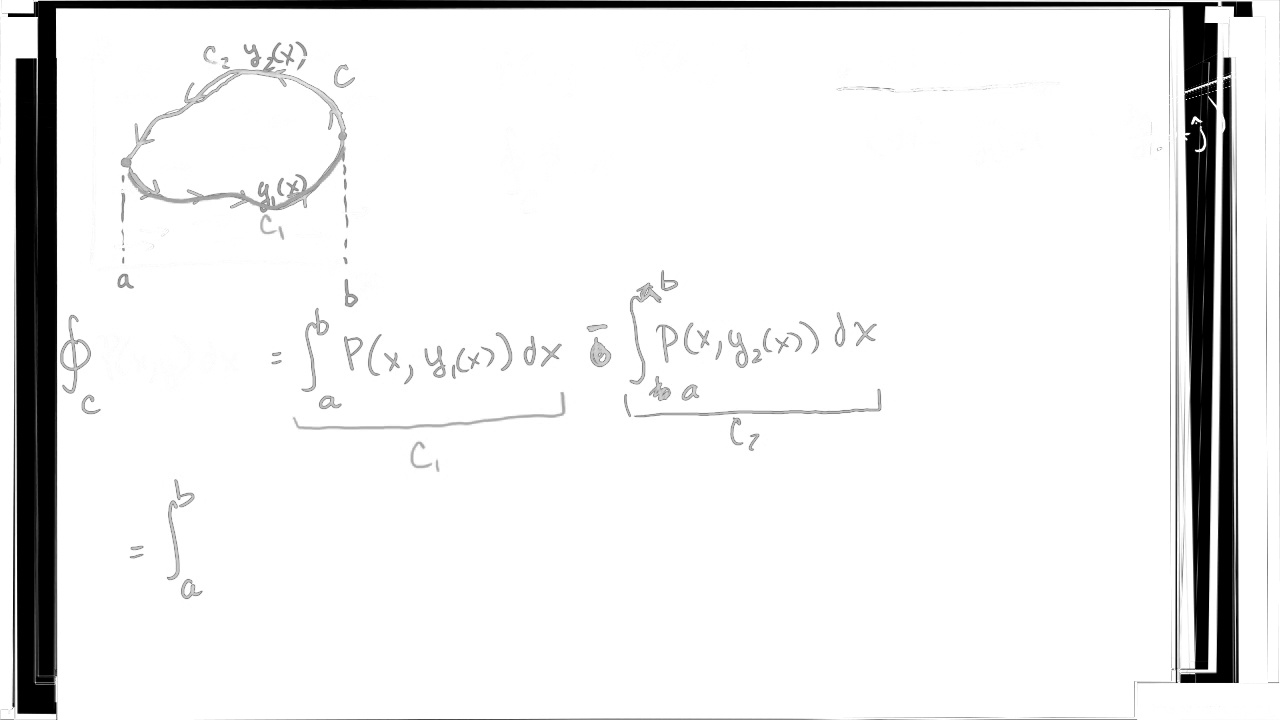 C₂ y₂(x) C
y₁(x)
C₁
a b
∮_C = ∫_a^b P(x, y₁(x)) dx − ∫_a^b P(x, y₂(x)) dx
C₁ C₂
= ∫_a^b
ĵ)